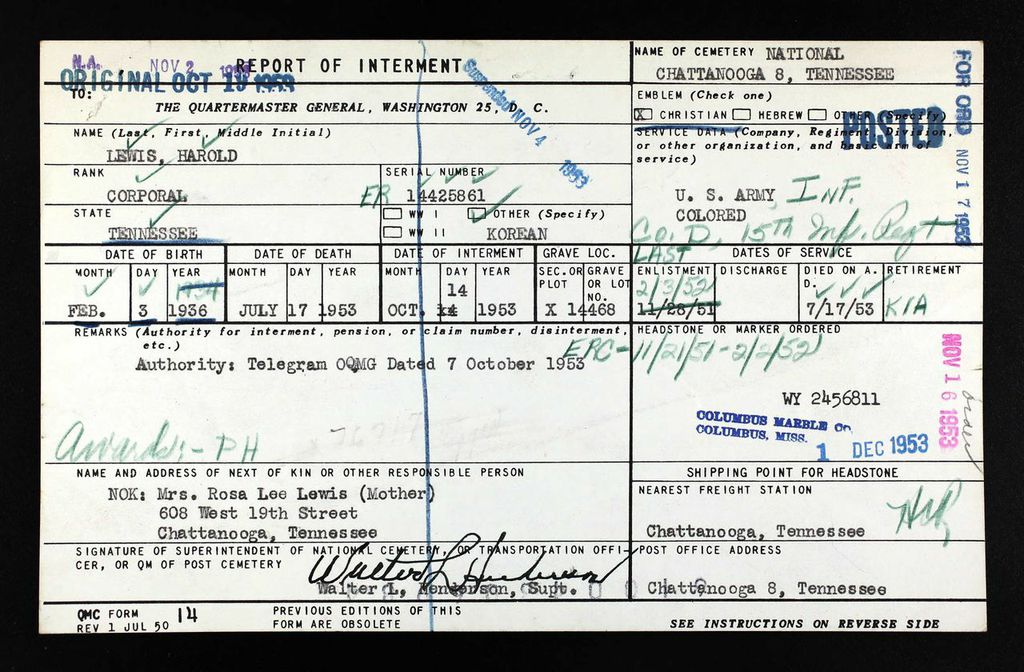 N.A. NOV 2 1953
ORIGINAL OCT 19 1953
REPORT OF INTERMENT
Suspended NOV 4 1953
TO:
THE QUARTERMASTER GENERAL, WASHINGTON 25, D. C.
NAME OF CEMETERY NATIONAL
CHATTANOOGA 8, TENNESSEE
EMBLEM (Check one)
X CHRISTIAN HEBREW OTHER (Specify)
POSTED
FOR ORD NOV 17 1953
NAME (Last, First, Middle Initial)
LEWIS, HAROLD
SERVICE DATA (Company, Regiment, Division,
or other organization, and basic arm of
service)
RANK
CORPORAL
SERIAL NUMBER
ER 14425861
U. S. ARMY, INF.
COLORED
Co. D, 15th Inf. Regt
STATE
TENNESSEE
WW I OTHER (Specify)
WW II KOREAN
DATE OF BIRTH DATE OF DEATH DATE OF INTERMENT GRAVE LOC. LAST DATES OF SERVICE
MONTH DAY YEAR MONTH DAY YEAR MONTH DAY YEAR SEC. OR PLOT GRAVE OR LOT NO. ENLISTMENT DISCHARGE DIED ON A. D. RETIREMENT
1934 14 2/3/52
FEB. 3 1936 JULY 17 1953 OCT. 14 1953 X 14468 11/28/51 7/17/53 KIA
REMARKS (Authority for interment, pension, or claim number, disinterment,
etc.)
HEADSTONE OR MARKER ORDERED
ERC-11/21/51-2/2/52
Authority: Telegram OQMG Dated 7 October 1953
NOV 16 1953
order
WY 2456811
COLUMBUS MARBLE CO.
COLUMBUS, MISS.
1 DEC 1953
Awards:- PH
NAME AND ADDRESS OF NEXT OF KIN OR OTHER RESPONSIBLE PERSON
NOK: Mrs. Rosa Lee Lewis (Mother)
608 West 19th Street
Chattanooga, Tennessee
SHIPPING POINT FOR HEADSTONE
NEAREST FREIGHT STATION
Chattanooga, Tennessee
SIGNATURE OF SUPERINTENDENT OF NATIONAL CEMETERY, OR TRANSPORTATION OFFI-
CER, OR QM OF POST CEMETERY
Walter L Henderson
Walter L. Henderson, Supt.
POST OFFICE ADDRESS
Chattanooga 8, Tennessee
QMC FORM 14
REV 1 JUL 50
PREVIOUS EDITIONS OF THIS
FORM ARE OBSOLETE
SEE INSTRUCTIONS ON REVERSE SIDE